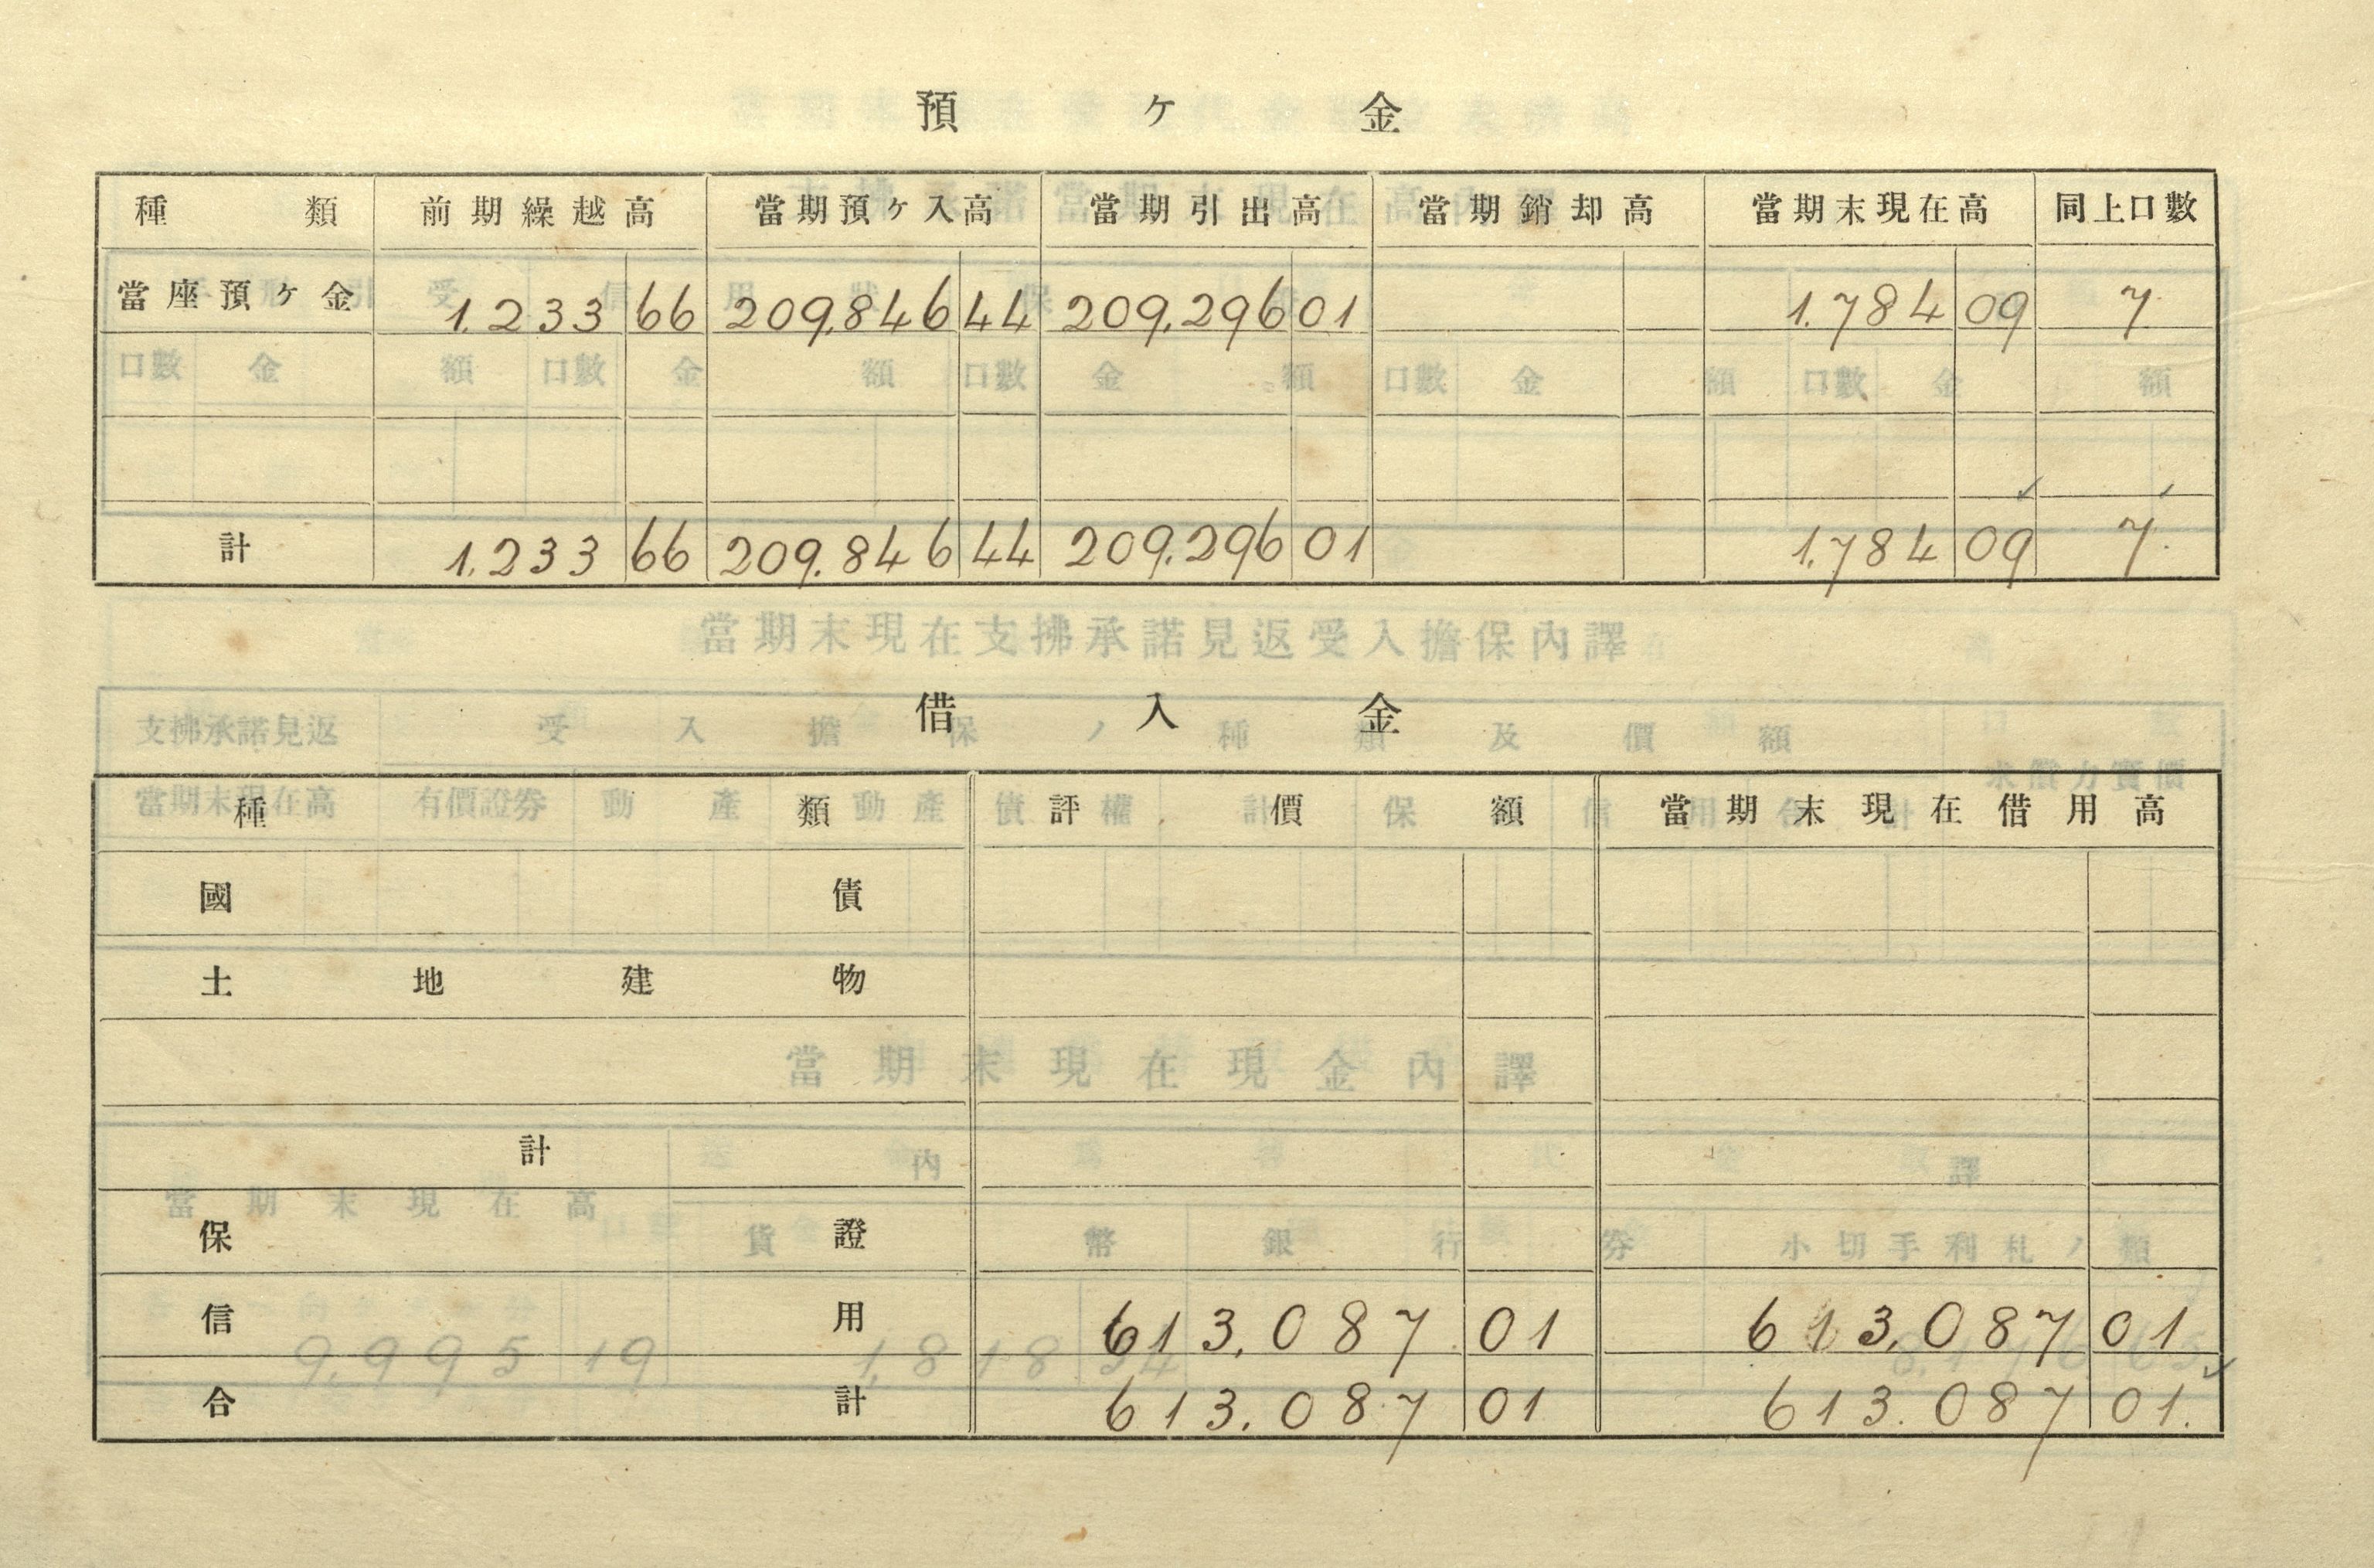 預ヶ金
種類 前期繰越高 當期預ヶ入高 當期引出高 當期銷却高 當期末現在高 同上口數
當座預ヶ金 1.233 66 209.846 44 209.296 01 1.784 09 7
計 1.233 66 209.846 44 209.296 01 1.784 09 7
借入金
種類 評價額 當期末現在借用高
國債
土地建物
計
保證
信用 613.087 01 613.087 01
合計 613.087 01 613.087 01